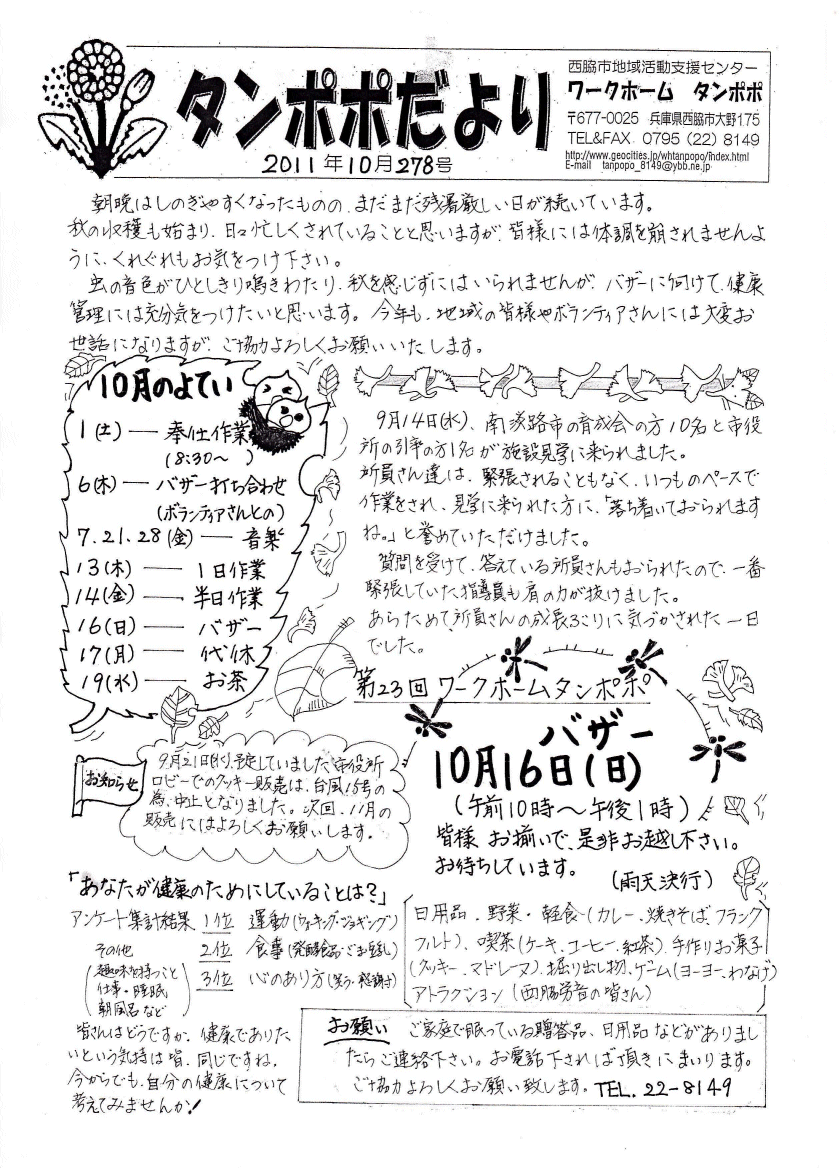 タンポポだより
2011年10月278号
西脇市地域活動支援センター
ワークホーム タンポポ
〒677-0025 兵庫県西脇市大野175
TEL&FAX 0795 (22) 8149
http://www.geocities.jp/whtanpopo/index.html
E-mail tanpopo_8149@ybb.ne.jp
朝晩はしのぎやすくなったものの、まだまだ残暑厳しい日が続いています。
秋の収穫も始まり、日々忙しくされていることと思いますが、皆様には体調を崩されませんよ
うに、くれぐれもお気をつけ下さい。
虫の音色がひとしきり鳴きわたり、秋を感じずにはいられませんが、バザーに向けて、健康
管理には充分気をつけたいと思います。今年も、地域の皆様やボランティアさんには大変お
世話になりますが、ご協力よろしくお願いいたします。
10月のよてい
1(土)― 奉仕作業
(8:30～ )
6(木)― バザー打ち合わせ
(ボランティアさんとの)
7.21.28(金)― 音楽
13(木)― 1日作業
14(金)― 半日作業
16(日)― バザー
17(月)― 代休
19(水)― お茶
9月14日(水)、南淡路市の育成会の方10名と市役
所の引率の方1名が施設見学に来られました。
所員さん達は、緊張されることもなく、いつものペースで
作業をされ、見学に来られた方に、「落ち着いておられます
ね。」と誉めていただけました。
質問を受けて、答えている所員さんもおられたので、一番
緊張していた指導員も肩の力が抜けました。
あらためて、所員さんの成長ぶりに気づかされた一日
でした。
第23回ワークホームタンポポ
バザー
10月16日(日)
(午前10時～午後1時)
皆様 お揃いで、是非お越し下さい。
お待ちしています。
(雨天決行)
お知らせ
9月21日(水)、予定していました市役所
ロビーでのクッキー販売は、台風15号の
為、中止となりました。次回、11月の
販売にはよろしくお願いします。
「あなたが健康のためにしていることは?」
アンケート集計結果 1位 運動(ウォーキング・ジョギング)
その他 2位 食事(発酵食品・ごま・豆乳)
3位 心のあり方(笑う・感謝)
(趣味を持つこと
仕事・睡眠
朝風呂など)
皆さんはどうですか。健康でありた
いという気持は皆、同じですね。
今からでも、自分の健康について
考えてみませんか!
日用品、野菜・軽食(カレー、焼きそば、フランク
フルト)、喫茶(ケーキ、コーヒー、紅茶)、手作りお菓子
(クッキー、マドレーヌ)、掘り出し物、ゲーム(ヨーヨー、わなげ)
アトラクション(西脇労音の皆さん)
お願い ご家庭で眠っている贈答品、日用品などがありまし
たらご連絡下さい。お電話下されば頂きにまいります。
ご協力よろしくお願い致します。TEL. 22-8149